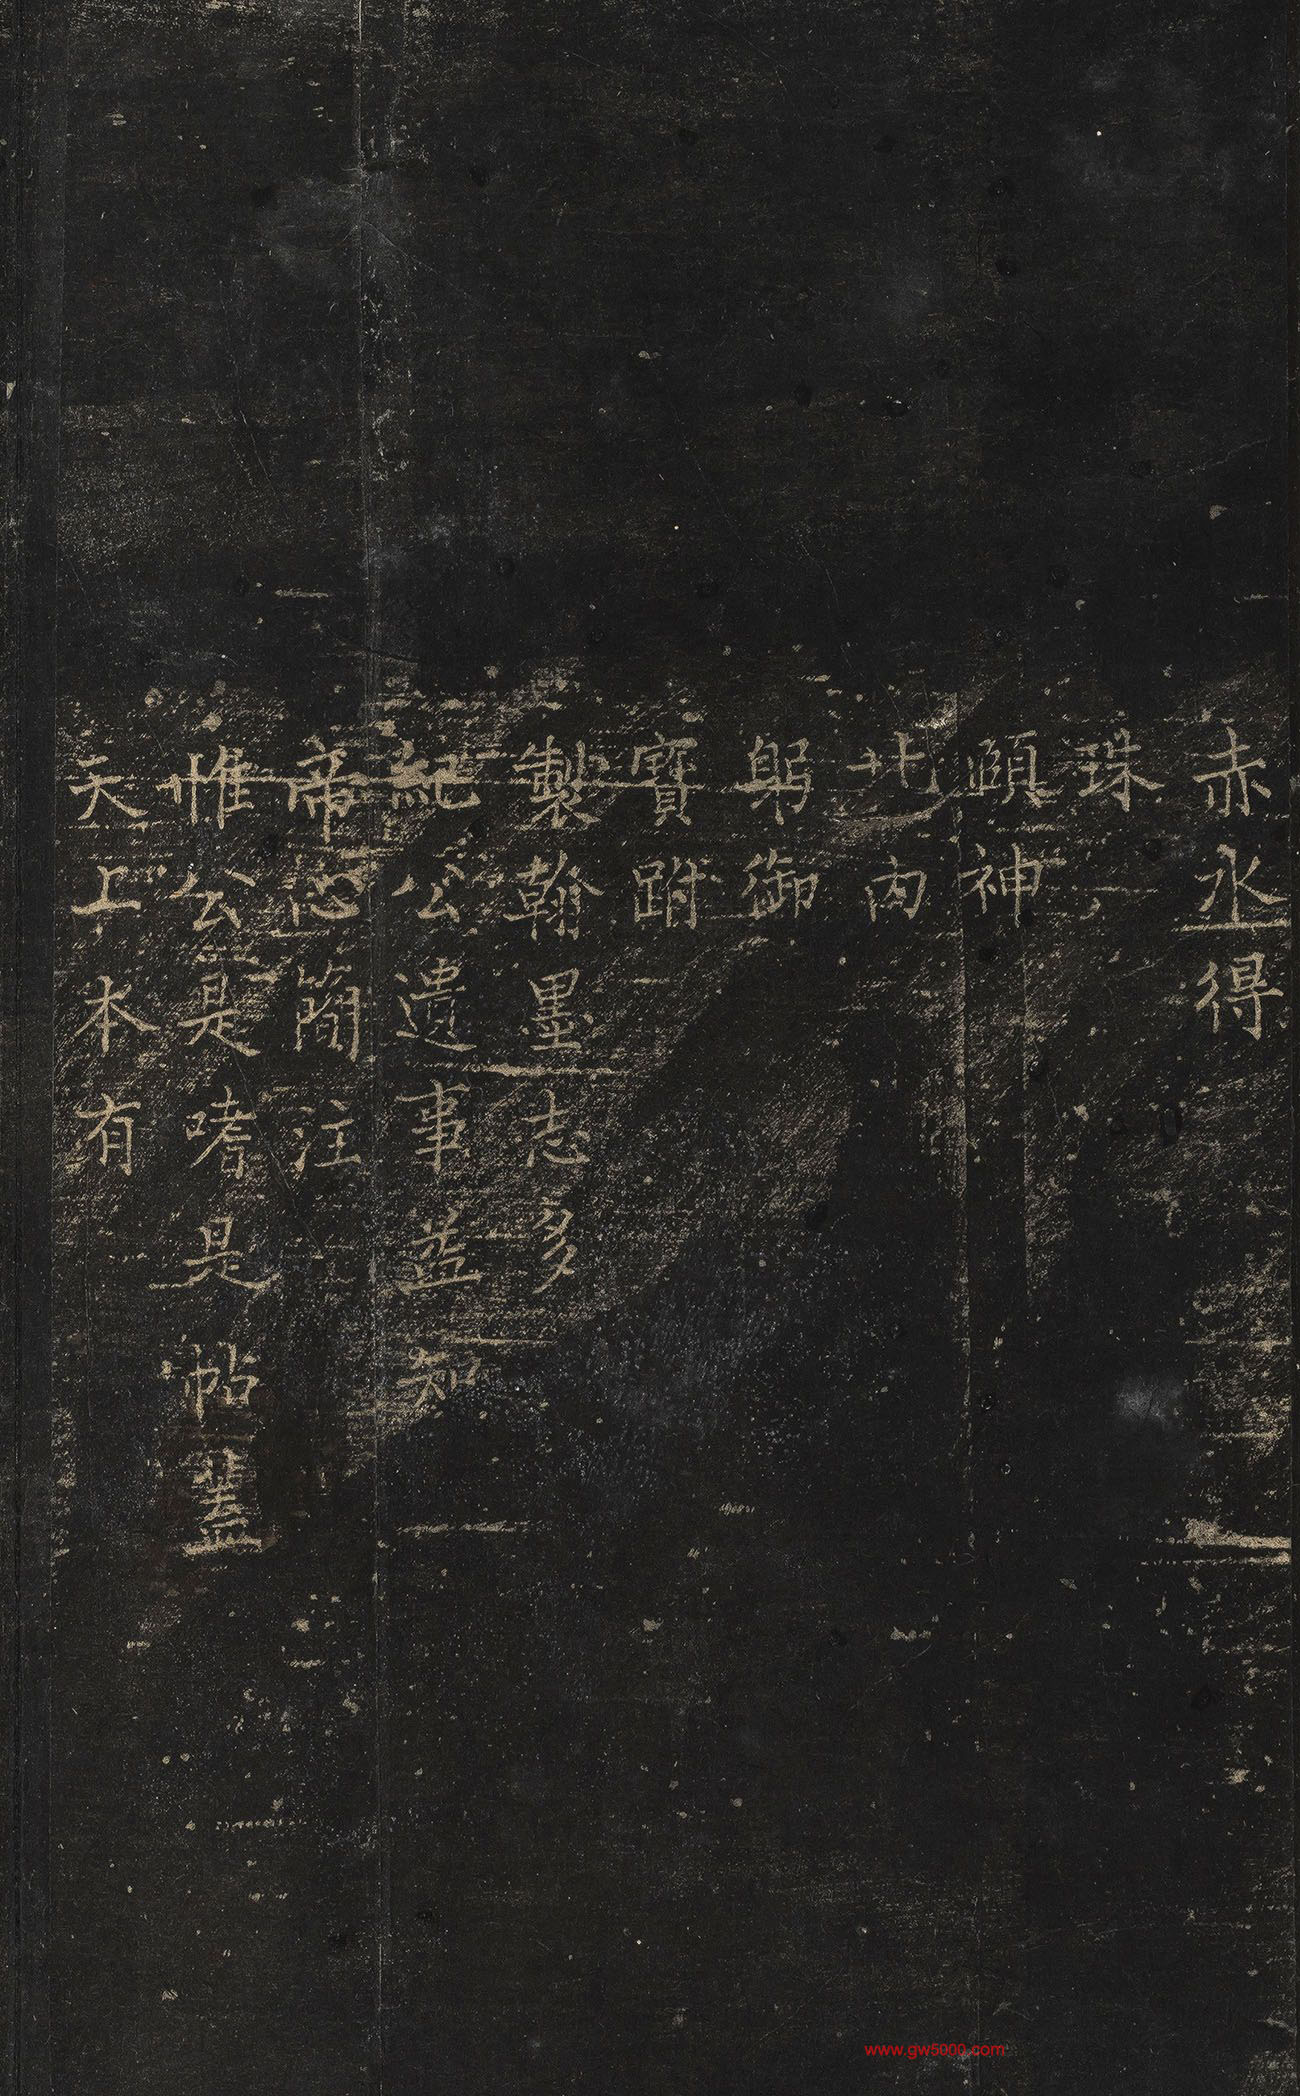 赤水得
珠
頤神
北内
躬御
寶跗
製翰墨志多
紀公遺事蓋知
帝心簡注
惟公是嗜是帖蓋
天上本有
www.gw5000.com